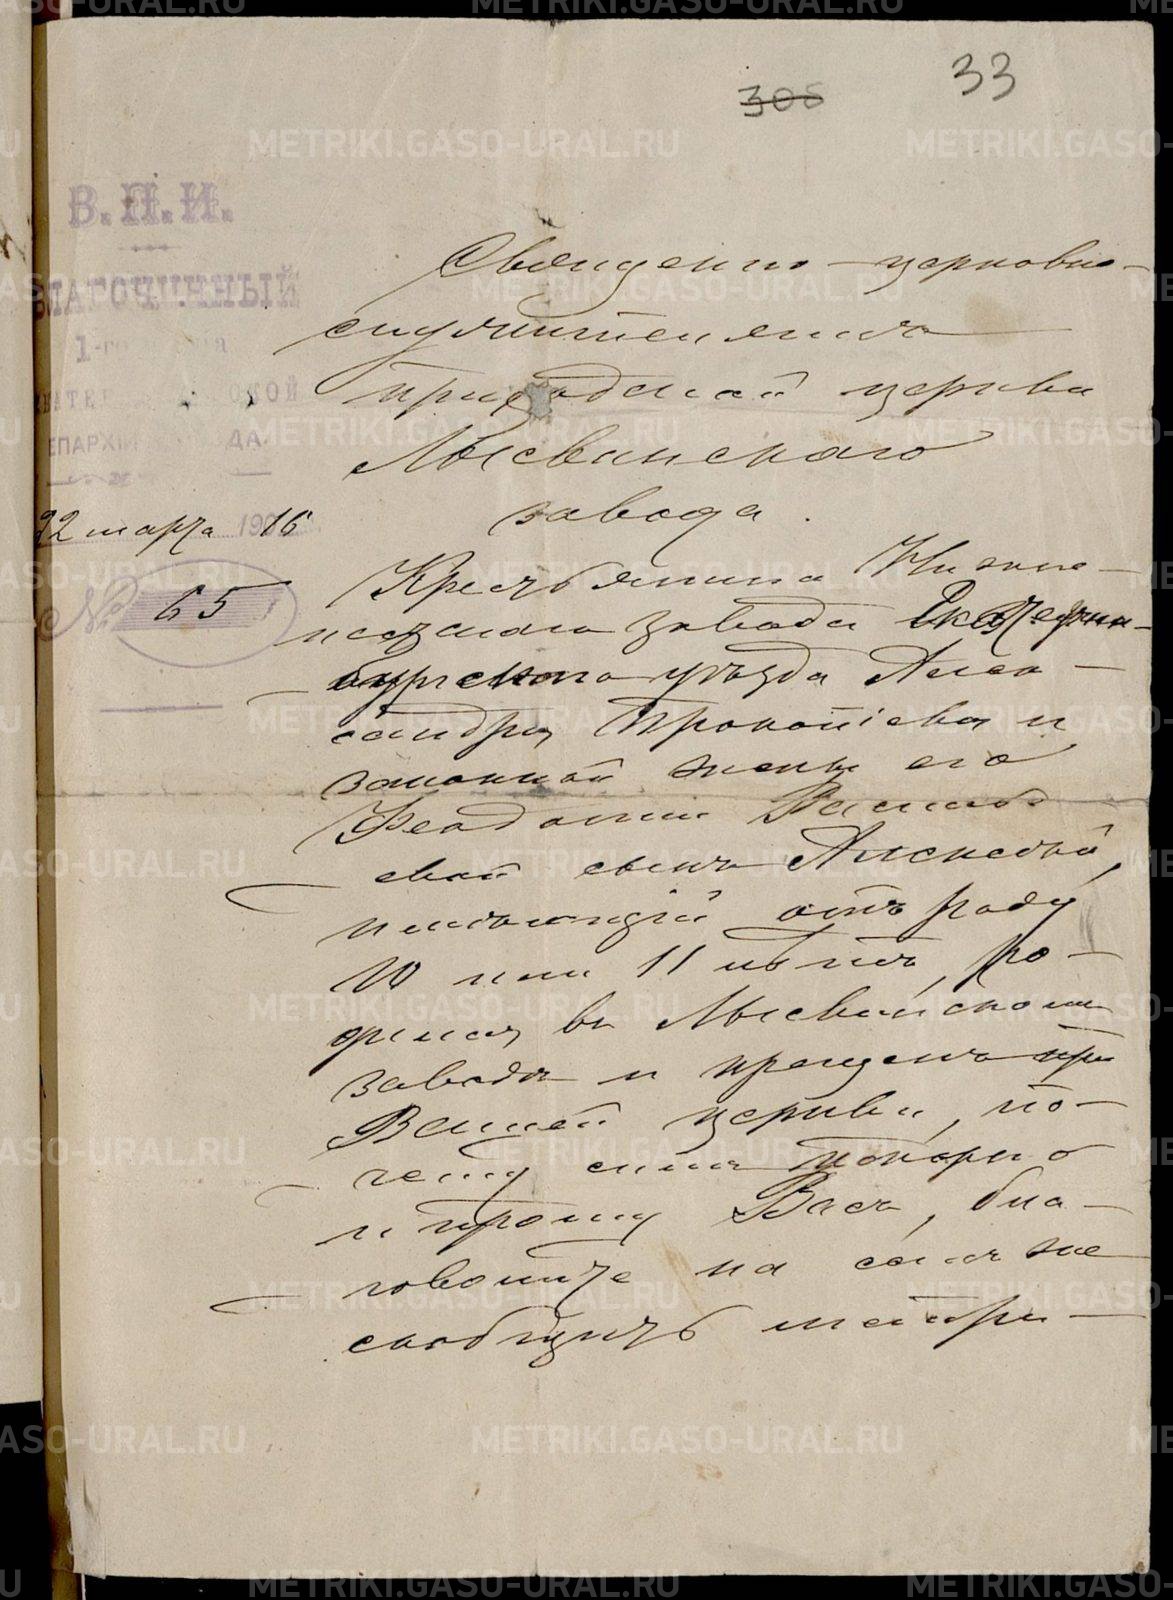 33
306
В.П.И.
БЛАГОЧИННЫЙ
1-го
ЕПАРХІИ
22 марта 1916
№ 65
Священно-церковно-
служителямъ
приходской церкви
Лысвинскаго
завода.
Крестьянина Нижне-
исетскаго завода Екатерин-
бургскаго уѣзда Алек-
сандра Прокопіева и
законной жены его
Феодосіи Василье-
вой сынъ Алексѣй,
имѣющій отъ роду
10 или 11 лѣтъ, ро-
дился въ Лысвинскомъ
заводѣ и крещенъ при
Вашей церкви, по-
чему симъ покорно
и прошу Васъ, бла-
говолите на семъ же
сообщить метри-
METRIKI.GASO-URAL.RU